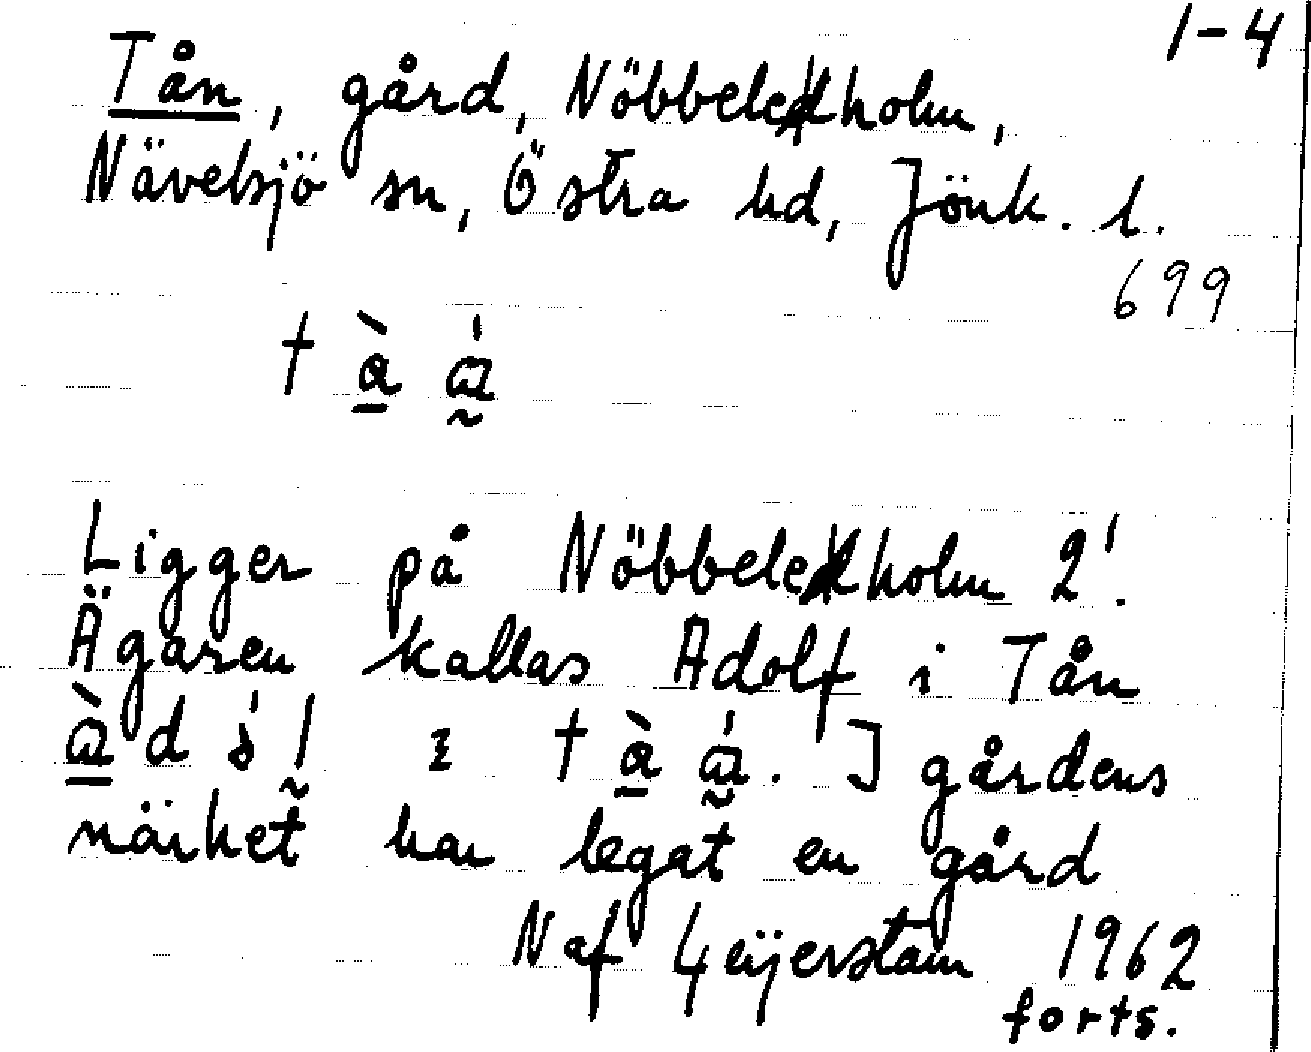 1-4
Tån, gård, Nöbbeleholm,
Nävelsjö sn, Östra hd, Jönk. l.
699
Ligger på Nöbbeleholm 2¹.
Ägaren kallas Adolf i Tån
I gårdens
närhet har legat en gård
N af Geijerstam 1962
forts.